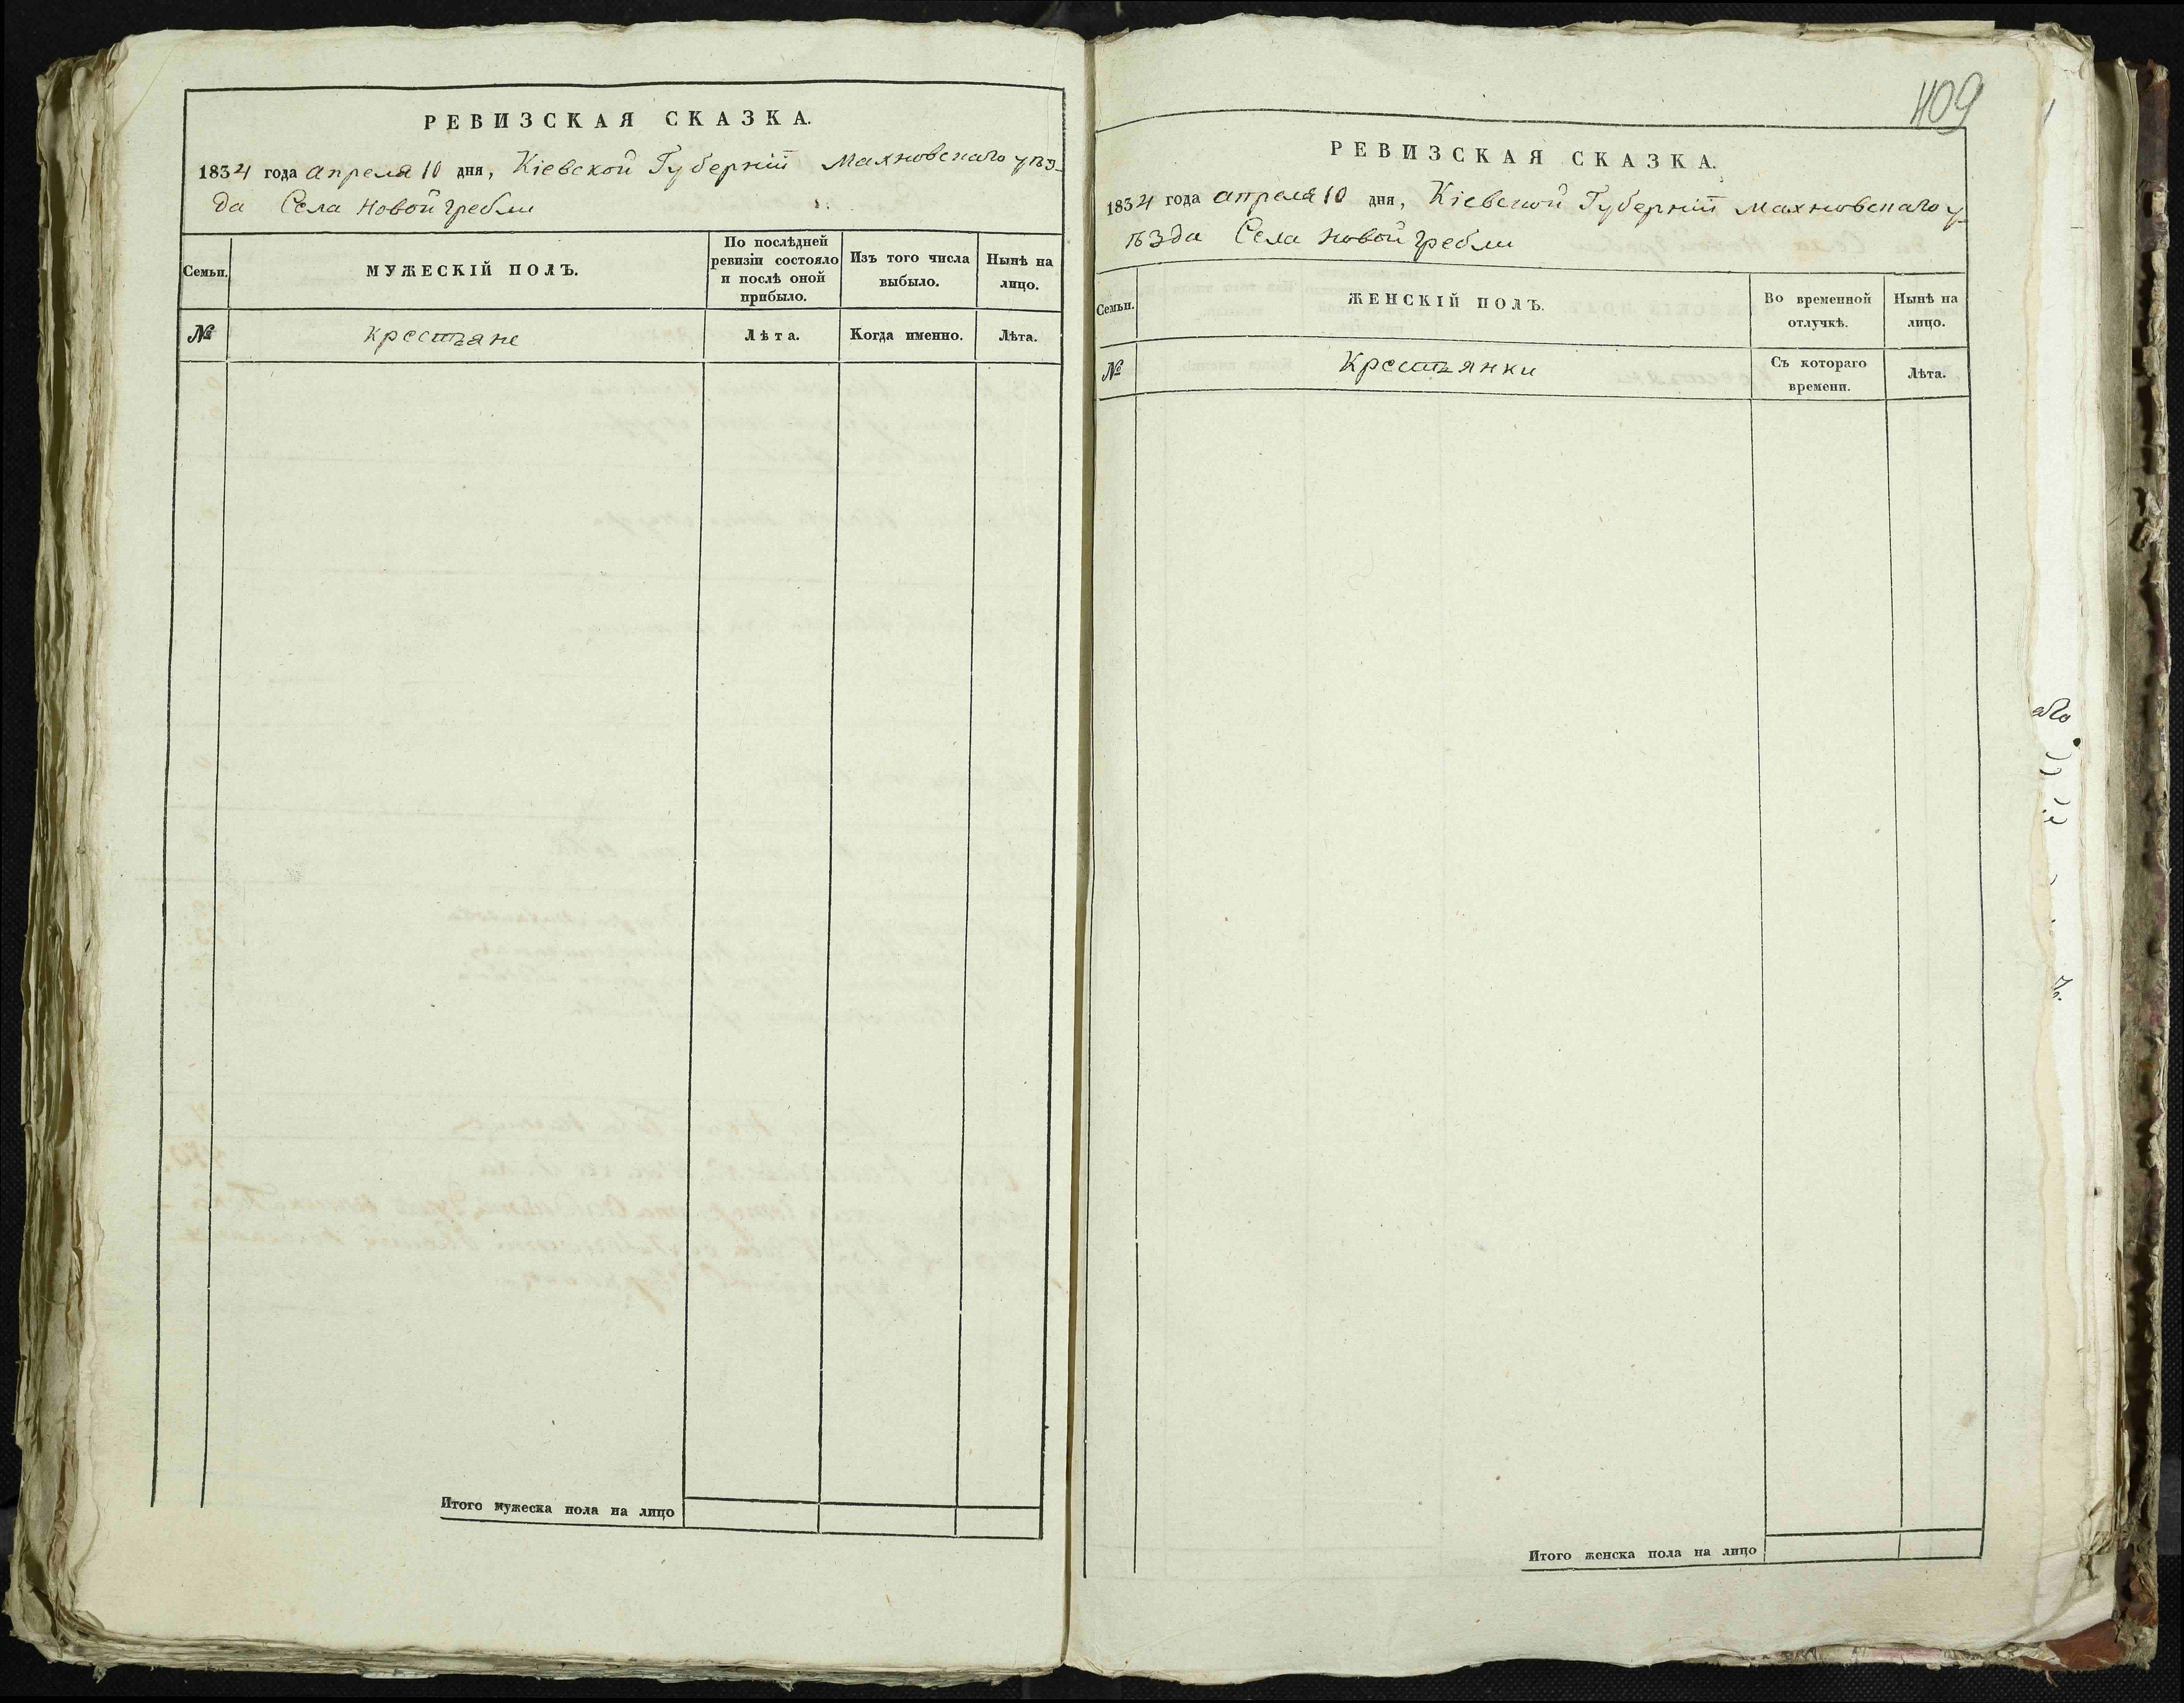 РЕВИЗСКАЯ СКАЗКА.
1834 года апреля 10 дня, Кіевской Губерніи Махновскаго уѣз-
да Села Новой гребли
Семьи.
МУЖЕСКІЙ ПОЛЪ.
По послѣдней
ревизіи состояло
и послѣ оной
прибыло.
Изъ того числа
выбыло.
Нынѣ на
лицо.
№
крестьяне
Лѣта.
Когда именно.
Лѣта.
Итого мужеска пола на лицо
409
РЕВИЗСКАЯ СКАЗКА.
1834 года апреля 10 дня, Кіевской Губерніи Махновскаго у-
ѣзда Села Новой гребли
Семьи.
ЖЕНСКІЙ ПОЛЪ.
Во временной
отлучкѣ.
Нынѣ на
лицо.
№
Крестьянки
Съ котораго
времени.
Лѣта.
Итого женска пола на лицо